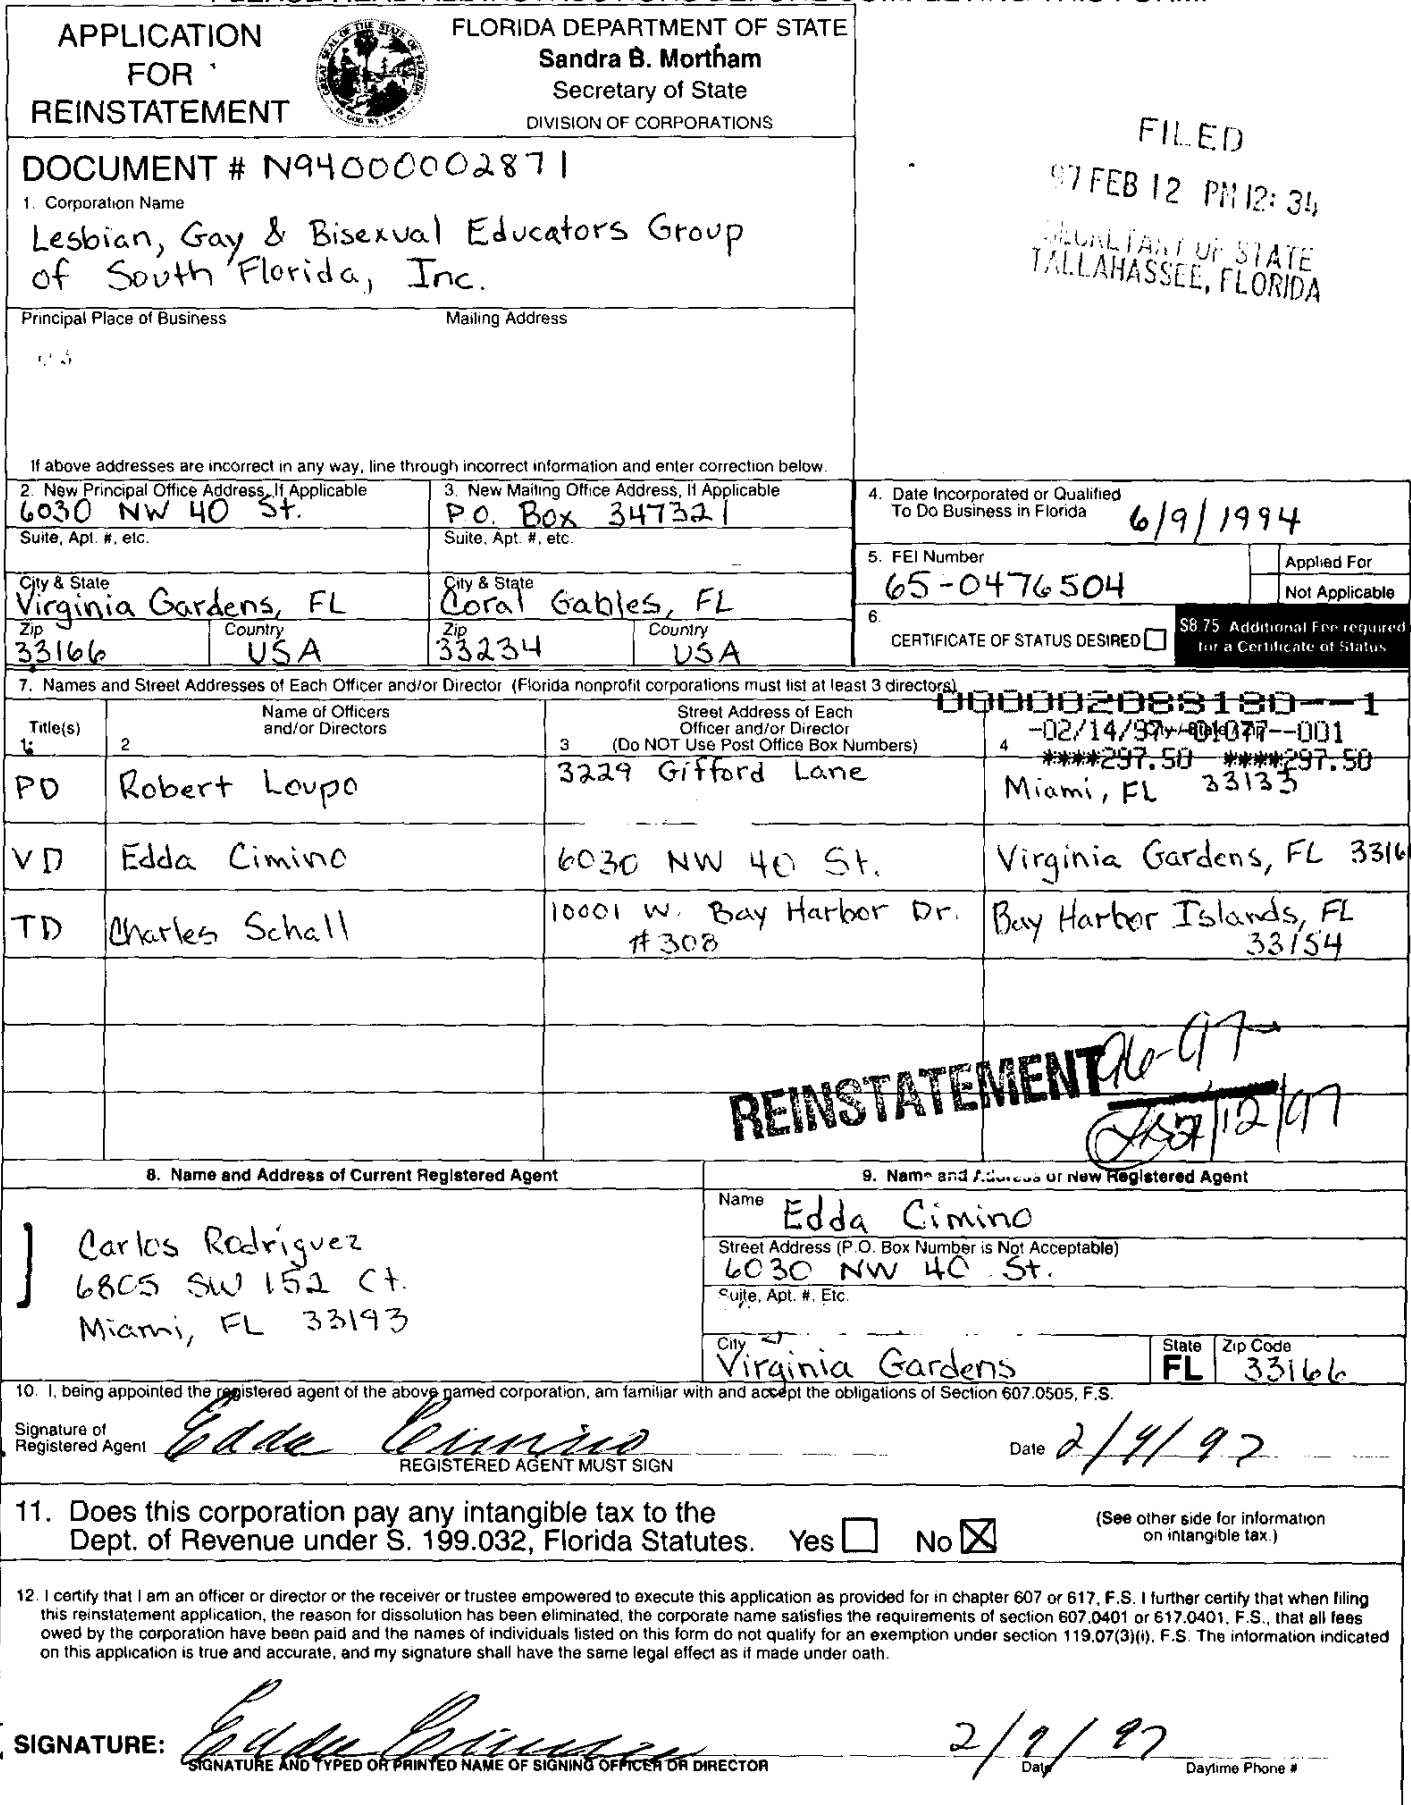 APPLICATION
FOR
REINSTATEMENT
FLORIDA DEPARTMENT OF STATE
Sandra B. Mortham
Secretary of State
DIVISION OF CORPORATIONS
FILED
97 FEB 12 PM 12:34
SECRETARY OF STATE
TALLAHASSEE, FLORIDA
DOCUMENT # N94000002871
1. Corporation Name
Lesbian, Gay & Bisexual Educators Group
of South Florida, Inc.
Principal Place of Business
Mailing Address
If above addresses are incorrect in any way, line through incorrect information and enter correction below.
2. New Principal Office Address, If Applicable
6030 NW 40 St.
Suite, Apt. #, etc.
City & State
Virginia Gardens, FL
Zip
33166
Country
USA
3. New Mailing Office Address, If Applicable
P.O. Box 347321
Suite, Apt. #, etc.
City & State
Coral Gables, FL
Zip
33234
Country
USA
4. Date Incorporated or Qualified
To Do Business in Florida
6/9/1994
5. FEI Number
65-0476504
Applied For
Not Applicable
6.
CERTIFICATE OF STATUS DESIRED
$8.75 Additional Fee required
for a Certificate of Status
7. Names and Street Addresses of Each Officer and/or Director (Florida nonprofit corporations must list at least 3 directors)
000002088180--1
-02/14/97--01077--001
****297.50 ****297.50
Title(s)
1
Name of Officers
and/or Directors
2
Street Address of Each
Officer and/or Director
3 (Do NOT Use Post Office Box Numbers)
4
PD Robert Loupo 3229 Gifford Lane Miami, FL 33133
VD Edda Cimino 6030 NW 40 St. Virginia Gardens, FL 3316
TD Charles Schall 10001 W. Bay Harbor Dr. Bay Harbor Islands, FL
#308 33154
REINSTATEMENT 96-97
2/12/97
8. Name and Address of Current Registered Agent
Carlos Rodriguez
6805 SW 152 Ct.
Miami, FL 33193
9. Name and Address of New Registered Agent
Name
Edda Cimino
Street Address (P.O. Box Number is Not Acceptable)
6030 NW 40 St.
Suite, Apt. #, Etc.
City
Virginia Gardens
State
FL
Zip Code
33166
10. I, being appointed the registered agent of the above named corporation, am familiar with and accept the obligations of Section 607.0505, F.S.
Signature of
Registered Agent
Edda Cimino
REGISTERED AGENT MUST SIGN
Date 2/9/97
11. Does this corporation pay any intangible tax to the
Dept. of Revenue under S. 199.032, Florida Statutes. Yes No
(See other side for information
on intangible tax.)
12. I certify that I am an officer or director or the receiver or trustee empowered to execute this application as provided for in chapter 607 or 617, F.S. I further certify that when filing
this reinstatement application, the reason for dissolution has been eliminated, the corporate name satisfies the requirements of section 607.0401 or 617.0401, F.S., that all fees
owed by the corporation have been paid and the names of individuals listed on this form do not qualify for an exemption under section 119.07(3)(i), F.S. The information indicated
on this application is true and accurate, and my signature shall have the same legal effect as if made under oath.
SIGNATURE:
Edda Cimino
SIGNATURE AND TYPED OR PRINTED NAME OF SIGNING OFFICER OR DIRECTOR
2/9/97
Date
Daytime Phone #